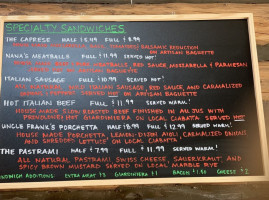 SPECIALTY SANDWICHES
THE CAPRESE HALF $5.49 FULL $8.99
BALSAMIC REDUCTION
ON ARTISAN BAGUETTE
NANA'S MEATBALLS FULL $11.99 SERVED HOT!
MEATBALLS, RED SAUCE, MOZZARELLA & PARMESAN
ON ARTISAN BAGUETTE
ITALIAN SAUSAGE FULL $10.99 SERVED HOT!
ALL NATURAL MILD ITALIAN SAUSAGE, RED SAUCE, AND CARMALIZED
SERVED ON ARTISAN BAGUETTE
HOT ITALIAN BEEF FULL $11.99 SERVED WARM!
HOUSE MADE SLOW ROASTED BEEF FINISHED IN AU JUS WITH
PROVOLONE HOT GIARDINIERA ON LOCAL CIABATTA SERVED HOT
UNCLE FRANK'S PORCHETTA HALF $8.99 FULL $12.99 SERVED WARM!
HOUSE MADE PORCHETTA, LEMON-DIJON AIOLI, CARMALIZED ONIONS
AND SHREDDED LETTUCE ON LOCAL CIABATTA
THE PASTRAMI HALF $7.99 FULL $11.99 SERVED WARM!
ALL NATURAL PASTRAMI, SWISS CHEESE, SAUERKRAUT, AND
SPICY BROWN MUSTARD SERVED ON LOCAL MARBLE RYE
SANDWICH ADDITIONS EXTRA MEAT $3 GIARDINIERA $1 BACON CHEESE